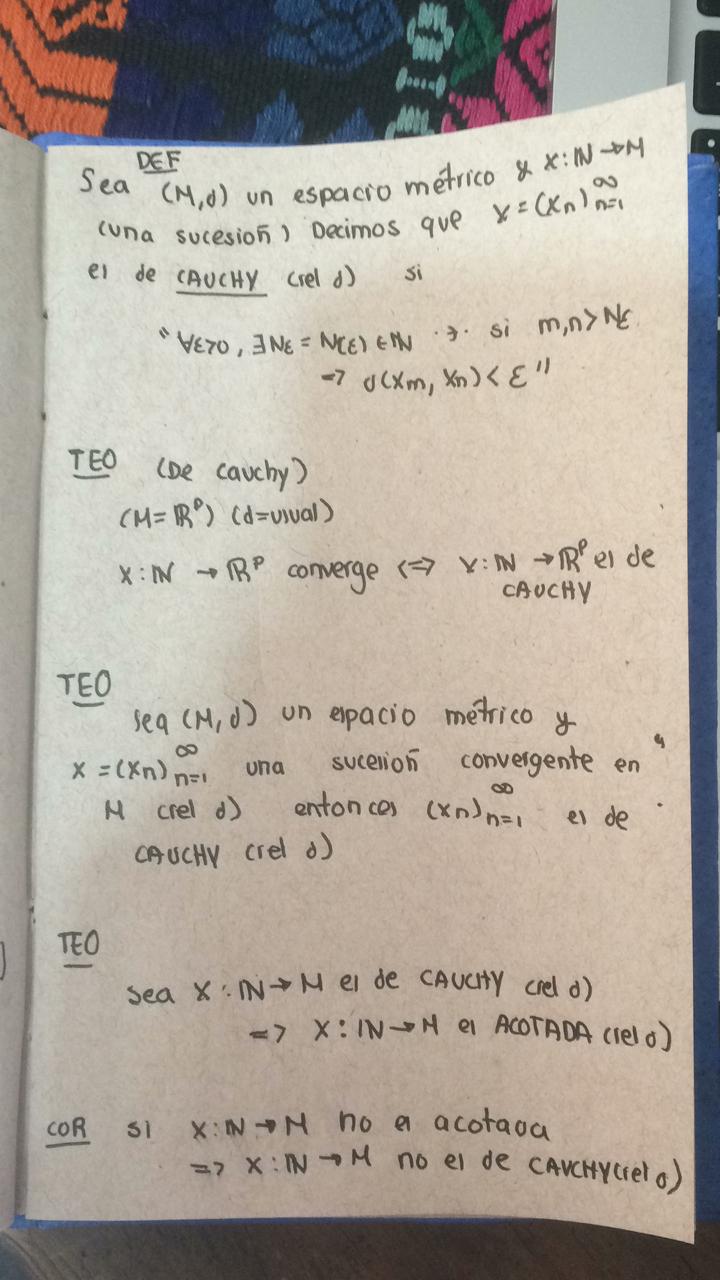 DEF
Sea (M,d) un espacio métrico y X:ℕ→M
(una sucesión) Decimos que X=(Xn)_{n=1}^∞
es de CAUCHY (rel d) si
"∀ε>0, ∃Nε = N(ε) ∈ ℕ ·∋· si m,n>Nε
=> d(Xm, Xn)< ε"
TEO (De cauchy)
(M=ℝ^p) (d=usual)
X:ℕ →ℝ^p converge <=> X:ℕ →ℝ^p es de
CAUCHY
TEO
Sea (M,d) un espacio métrico y
X =(Xn)_{n=1}^∞ una sucesión convergente en
M (rel d) entonces (Xn)_{n=1}^∞ es de
CAUCHY (rel d)
TEO
Sea X:ℕ→M es de CAUCHY (rel d)
=> X:ℕ→M es ACOTADA (rel d)
COR si X:ℕ→M no es acotada
=> X:ℕ→M no es de CAUCHY(rel d)